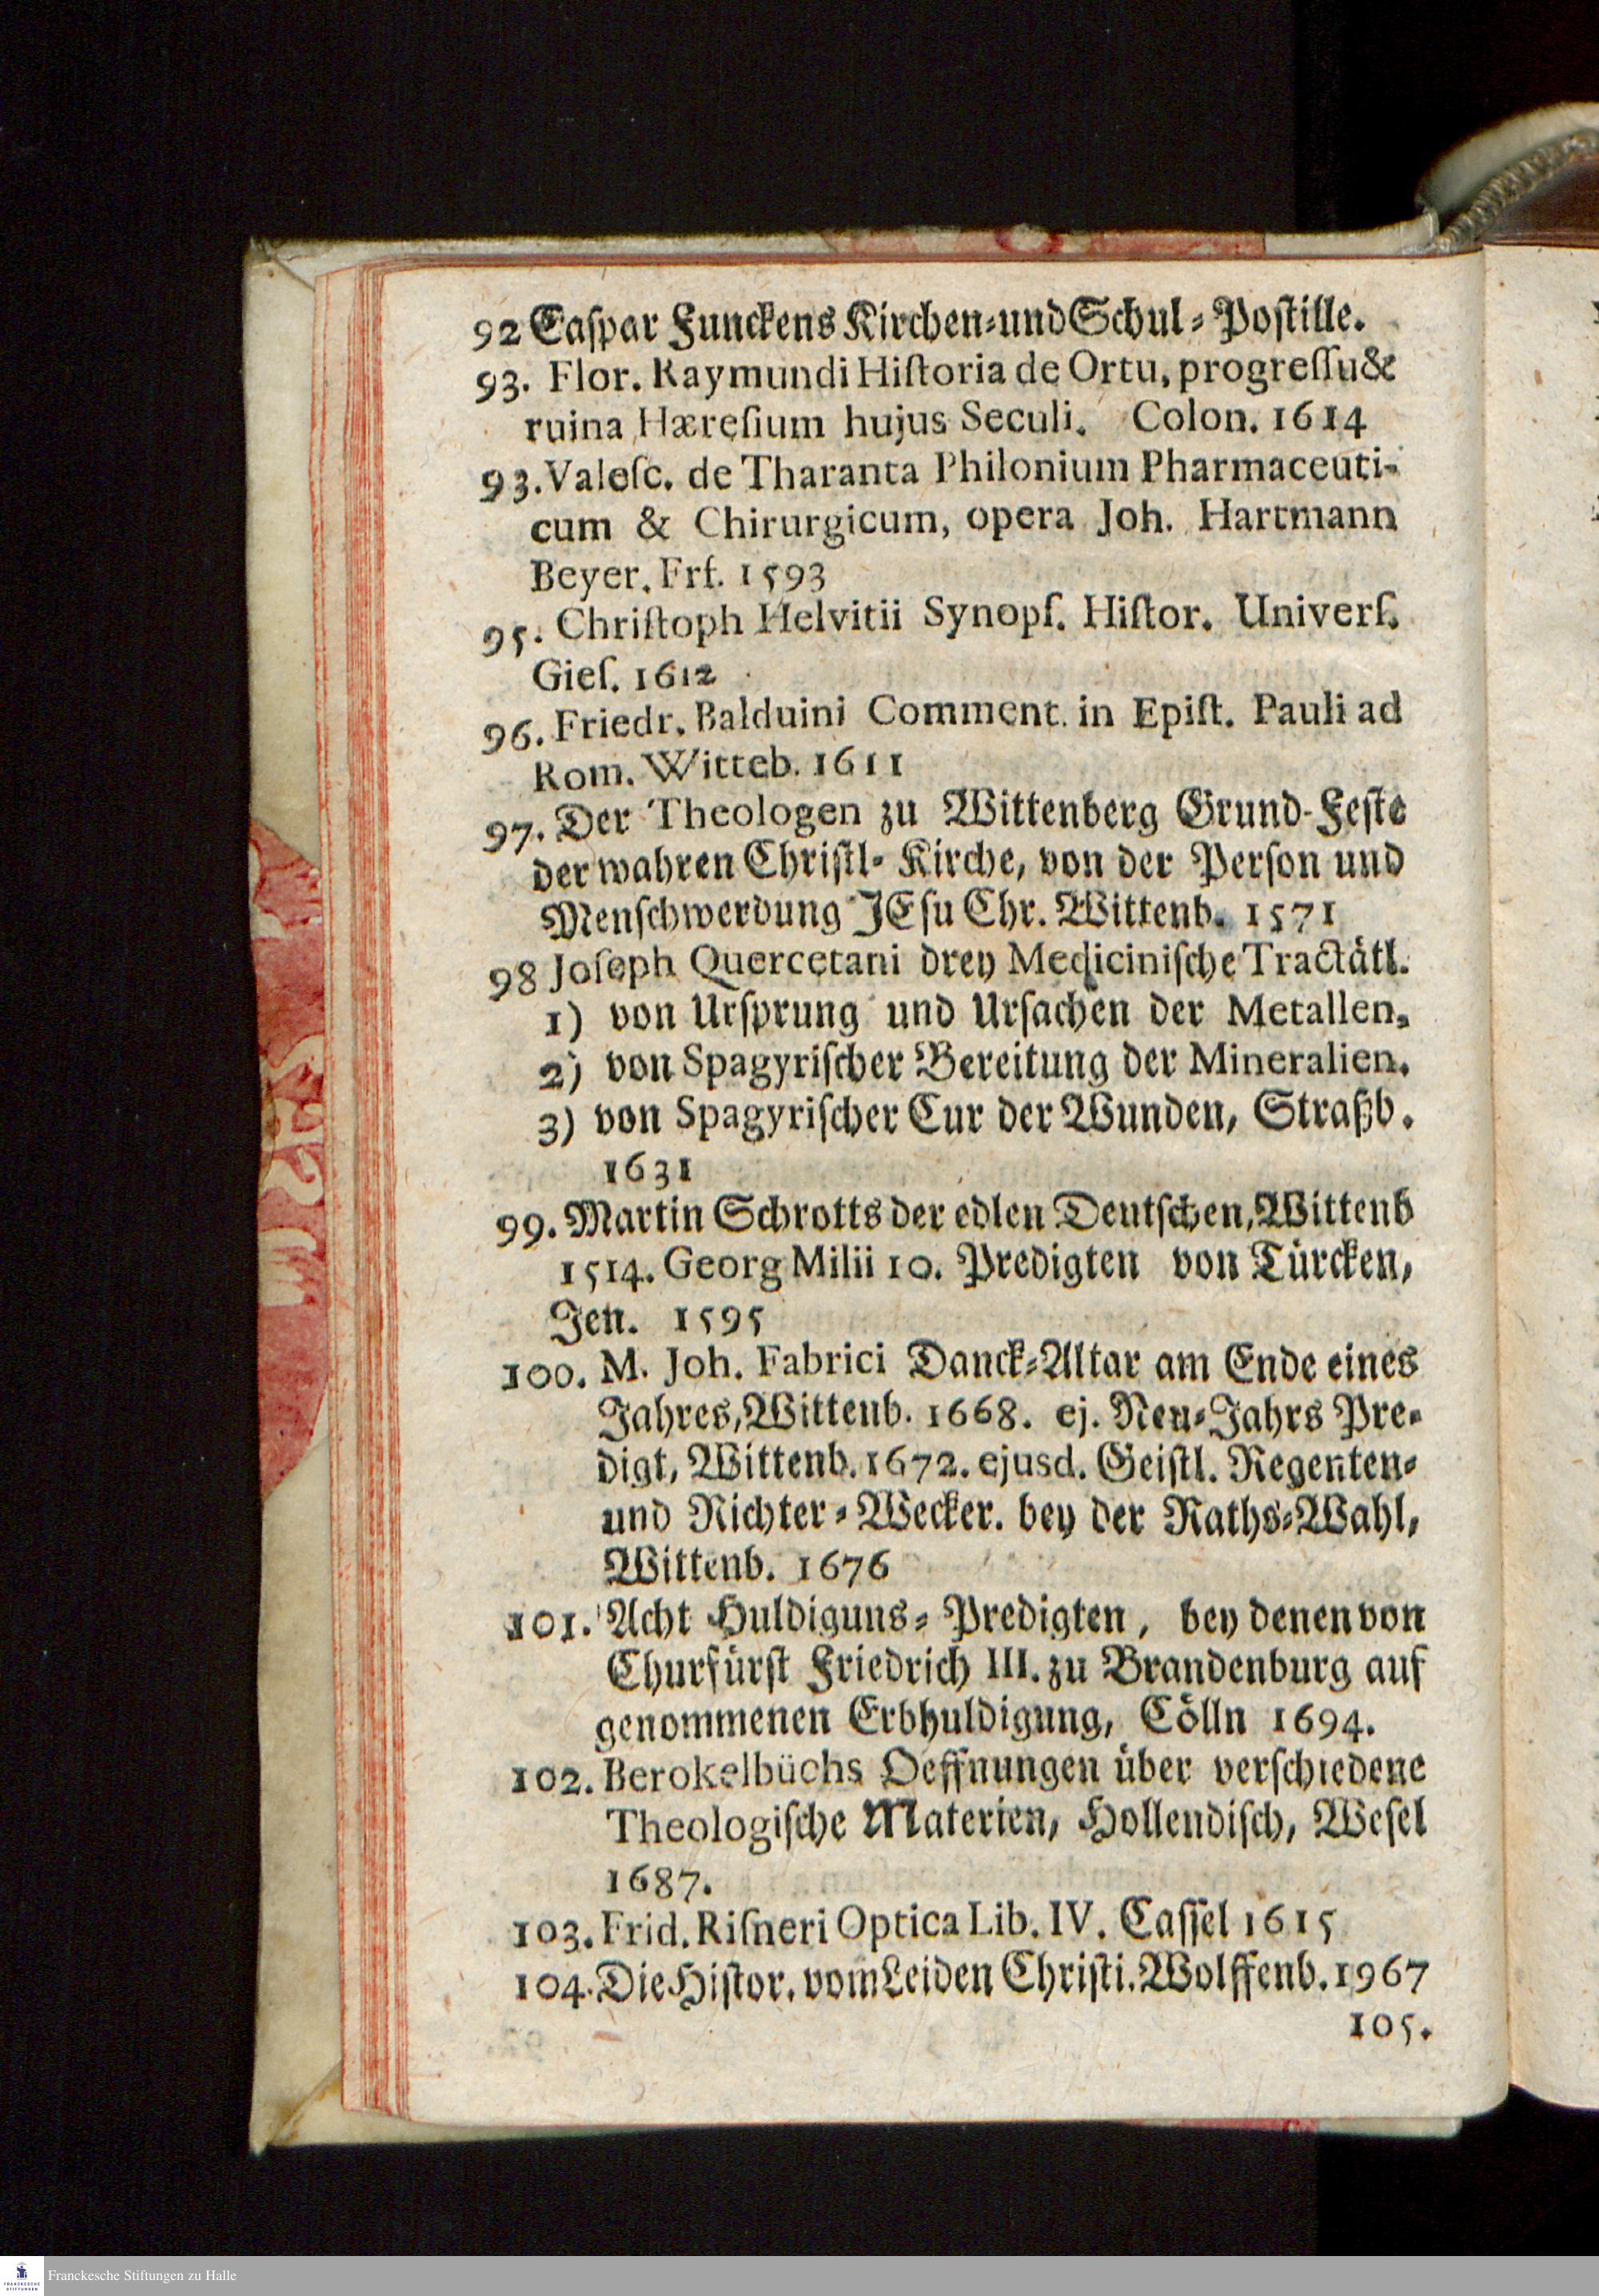 92 Caſpar Funckens Kirchen-und Schul-Poſtille.
93. Flor. Raymundi Hiſtoria de Ortu, progreſſu &
ruina Hæreſium hujus Seculi. Colon. 1614
93. Valeſc. de Tharanta Philonium Pharmaceuti-
cum & Chirurgicum, opera Joh. Hartmann
Beyer. Frf. 1593
95. Chriſtoph Helvitii Synopſ. Hiſtor. Univerſ.
Gieſ. 1612
96. Friedr. Balduini Comment. in Epiſt. Pauli ad
Rom. Witteb. 1611
97. Der Theologen zu Wittenberg Grund-Feſte
der wahren Chriſtl- Kirche, von der Perſon und
Menſchwerdung JEſu Chr. Wittenb. 1571
98 Joſeph Quercetani drey Mediciniſche Tractätl.
1) von Urſprung und Urſachen der Metallen.
2) von Spagyriſcher Bereitung der Mineralien.
3) von Spagyriſcher Cur der Wunden, Straßb.
1631
99. Martin Schrotts der edlen Deutſchen, Wittenb
1514. Georg Milii 10. Predigten von Türcken,
Jen. 1595
100. M. Joh. Fabrici Danck-Altar am Ende eines
Jahres, Wittenb. 1668. ej. Neu-Jahrs Pre-
digt, Wittenb. 1672. ejusd. Geiſtl. Regenten-
und Richter-Wecker. bey der Raths-Wahl,
Wittenb. 1676
101. Acht Huldiguns-Predigten, bey denen von
Churfürſt Friedrich III. zu Brandenburg auf
genommenen Erbhuldigung, Cölln 1694.
102. Berokelbüchs Oeffnungen über verſchiedene
Theologiſche Materien, Hollendiſch, Weſel
1687.
103. Frid. Riſneri Optica Lib. IV. Caſſel 1615
104. Die Hiſtor. vom Leiden Chriſti. Wolffenb. 1967
105.
FRANCKESCHE
STIFTUNGEN
Franckesche Stiftungen zu Halle